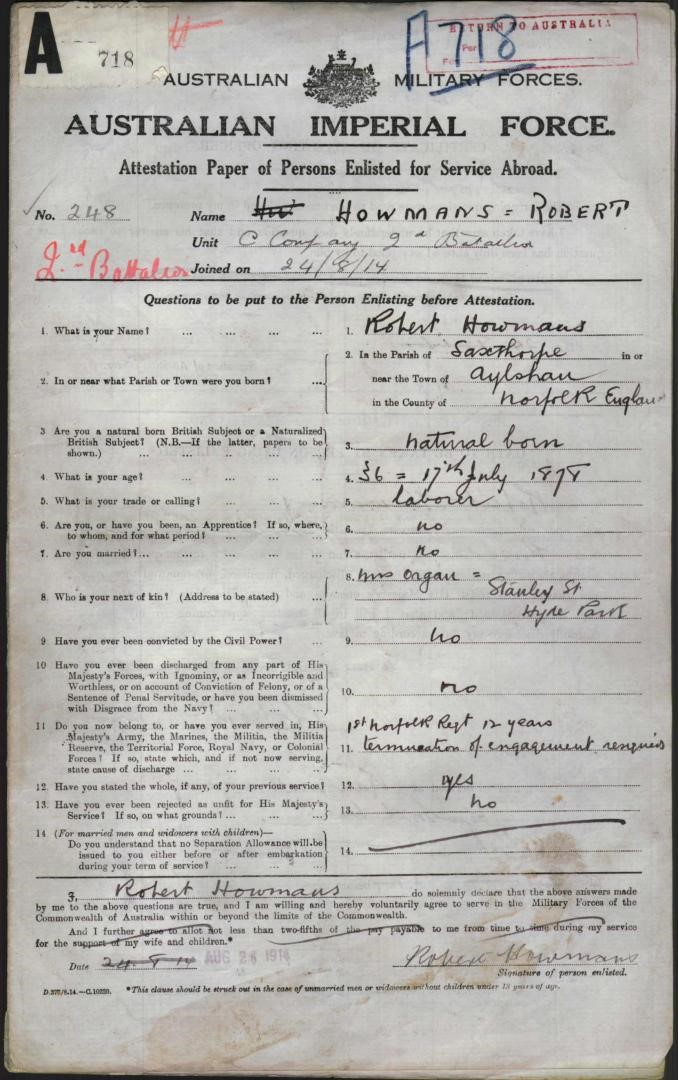 A
718
A718
RETURN TO AUSTRALIA
AUSTRALIAN MILITARY FORCES.
AUSTRALIAN IMPERIAL FORCE.
Attestation Paper of Persons Enlisted for Service Abroad.
No. 248 Name HOWMANS = ROBERT
Unit C Company 2nd Batalion
2nd Battalion Joined on 24/8/14
Questions to be put to the Person Enlisting before Attestation.
1. What is your Name? ... ... ... ... 1. Robert Howmans
2. In or near what Parish or Town were you born? ... 2. In the Parish of Saxthorpe in or
near the Town of Aylsham
in the County of Norfolk England
3 Are you a natural born British Subject or a Naturalized
British Subject? (N.B.—If the latter, papers to be
shown.) ... ... ... ... 3. natural born
4. What is your age? ... ... ... ... 4. 36 = 17th July 1878
5. What is your trade or calling? ... ... ... 5. laborer
6. Are you, or have you been, an Apprentice? If so, where,
to whom, and for what period? ... ... ... 6. no
7. Are you married?... ... ... ... ... 7. no
8. Who is your next of kin? (Address to be stated) ... 8. Mrs Organ =
Stanley St
Hyde Park
9 Have you ever been convicted by the Civil Power? ... 9. no
10 Have you ever been discharged from any part of His
Majesty's Forces, with Ignominy, or as Incorrigible and
Worthless, or on account of Conviction of Felony, or of a
Sentence of Penal Servitude, or have you been dismissed
with Disgrace from the Navy? ... ... ... 10. no
11 Do you now belong to, or have you ever served in, His
Majesty's Army, the Marines, the Militia, the Militia
Reserve, the Territorial Force, Royal Navy, or Colonial
Forces? If so, state which, and if not now serving,
state cause of discharge ... ... ... ... 1st Norfolk Regt 12 years
11. termination of engagement
12. Have you stated the whole, if any, of your previous service? 12. yes
13. Have you ever been rejected as unfit for His Majesty's
Service? If so, on what grounds? ... ... ... 13. no
14 (For married men and widowers with children)—
Do you understand that no Separation Allowance will be
issued to you either before or after embarkation
during your term of service? ... ... ... 14.
I, Robert Howmans do solemnly declare that the above answers made
by me to the above questions are true, and I am willing and hereby voluntarily agree to serve in the Military Forces of the
Commonwealth of Australia within or beyond the limits of the Commonwealth.
And I further agree to allot not less than two-fifths of the pay payable to me from time to time during my service
for the support of my wife and children.*
Date 24.8.14 AUG 26 1914 Robert Howmans
Signature of person enlisted.
D.377/8.14.—C.10220. *This clause should be struck out in the case of unmarried men or widowers without children under 18 years of age.